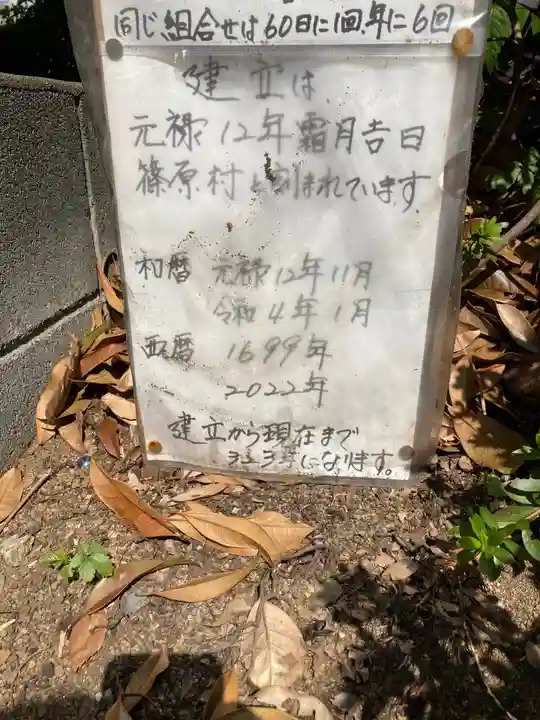 同じ組合せは60日に1回.年に6回
建立は、
元禄12年霜月吉日
篠原村と刻まれています.
和暦 元禄12年11月
令和4年1月
西暦 1699年
2022年
建立から現在まで
323年になります。